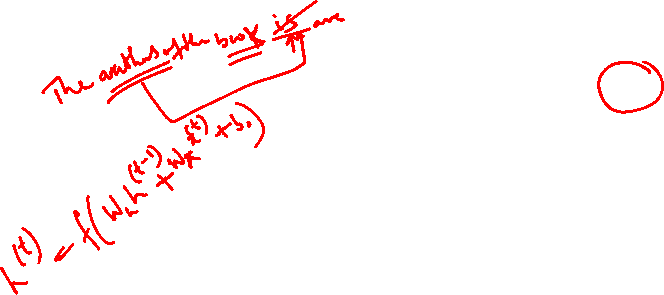 The authors of the book is are
h^(t) = f(W_h h^(t-1) + W_x x^(t) + b_0)